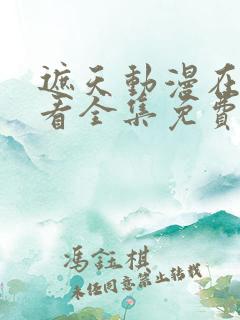 遮天動漫在
看全集免費
馮鈺棋
未任同意禁止转载